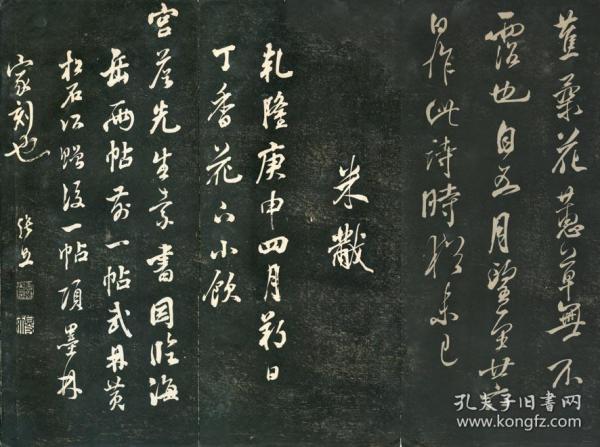 蕉葉花蕙草無不
露也自五月望至廿六
日作此詩時猶未已
米黻
乾隆庚申四月朔日
丁香花下小飲
宮詹先生索書因臨海
岳兩帖前一帖武林黄
松石所贈後一帖項墨林
家刻也 張照
孔夫子旧书网
www.kongfz.com